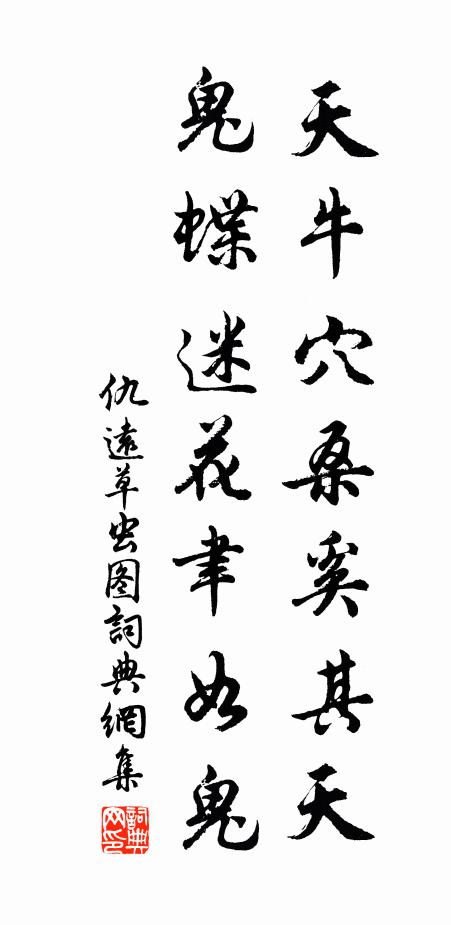 天牛穴桑奚其天
鬼蝶迷花聿如鬼
仇遠草虫图詞典網集
詞典网印